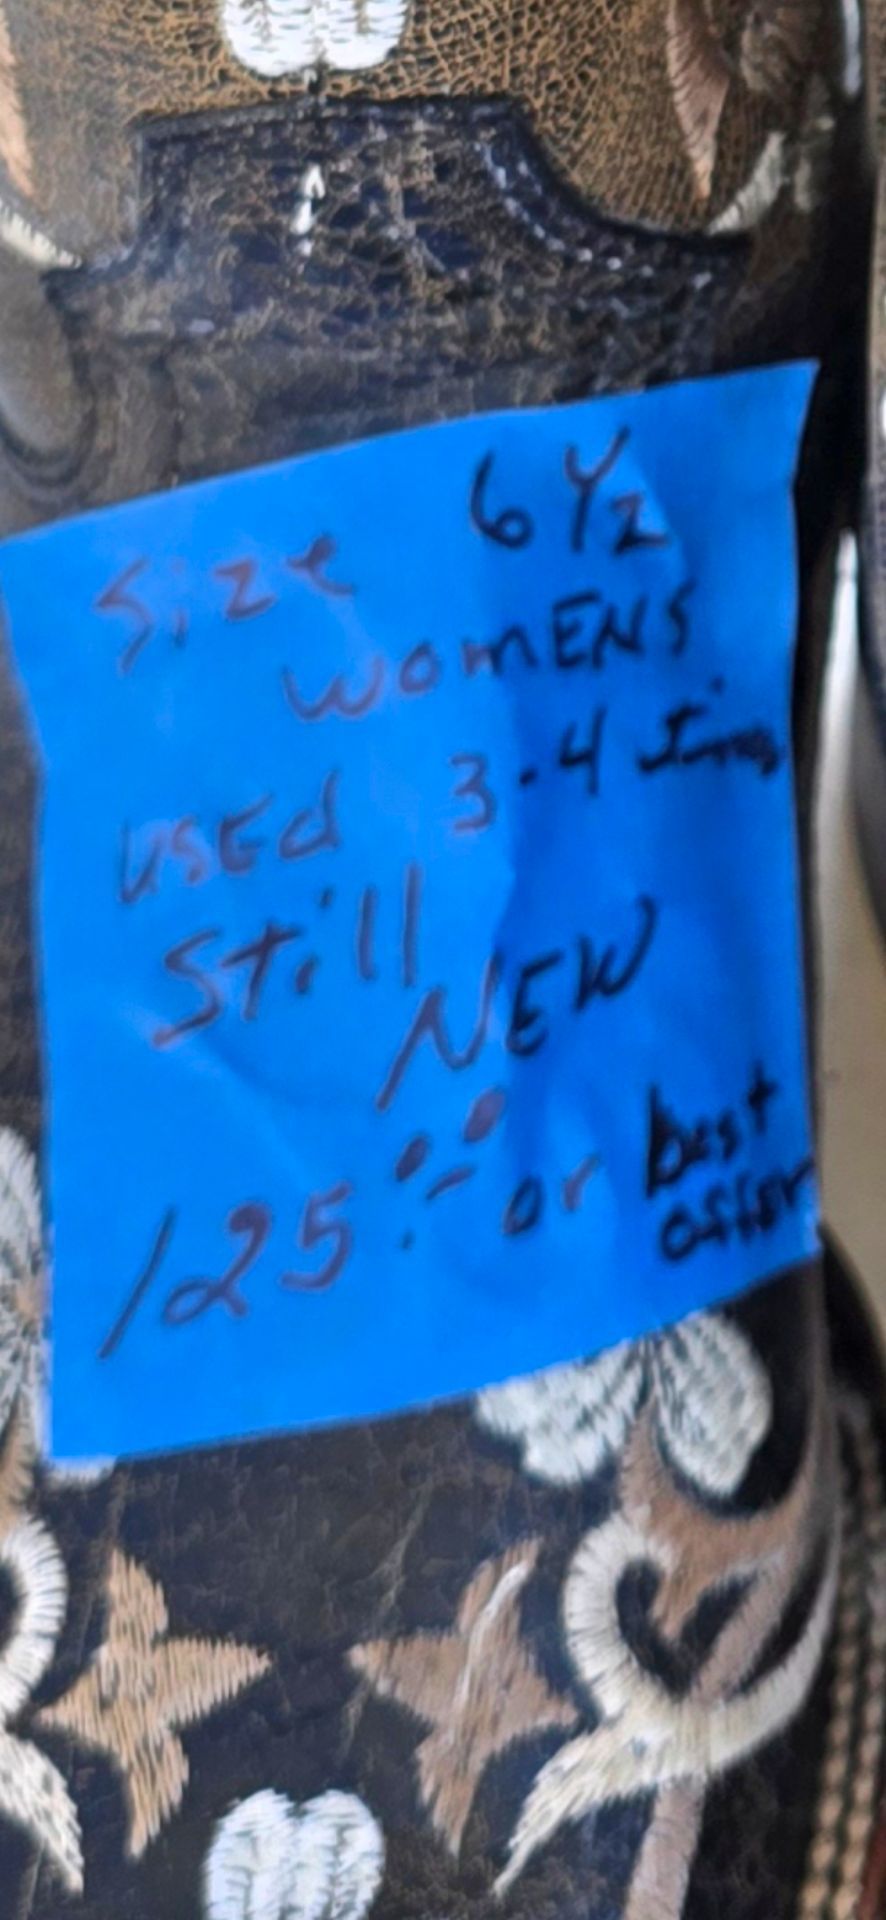 Size 6 1/2
WOMENS
USEd 3-4 times
Still
NEW
125.00 or best
offer